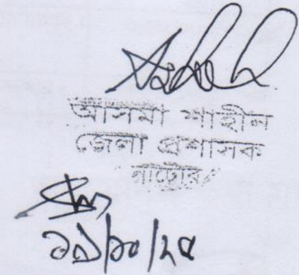 আসমা শাহীন
জেলা প্রশাসক
নাটোর
১৯/১০/২৫